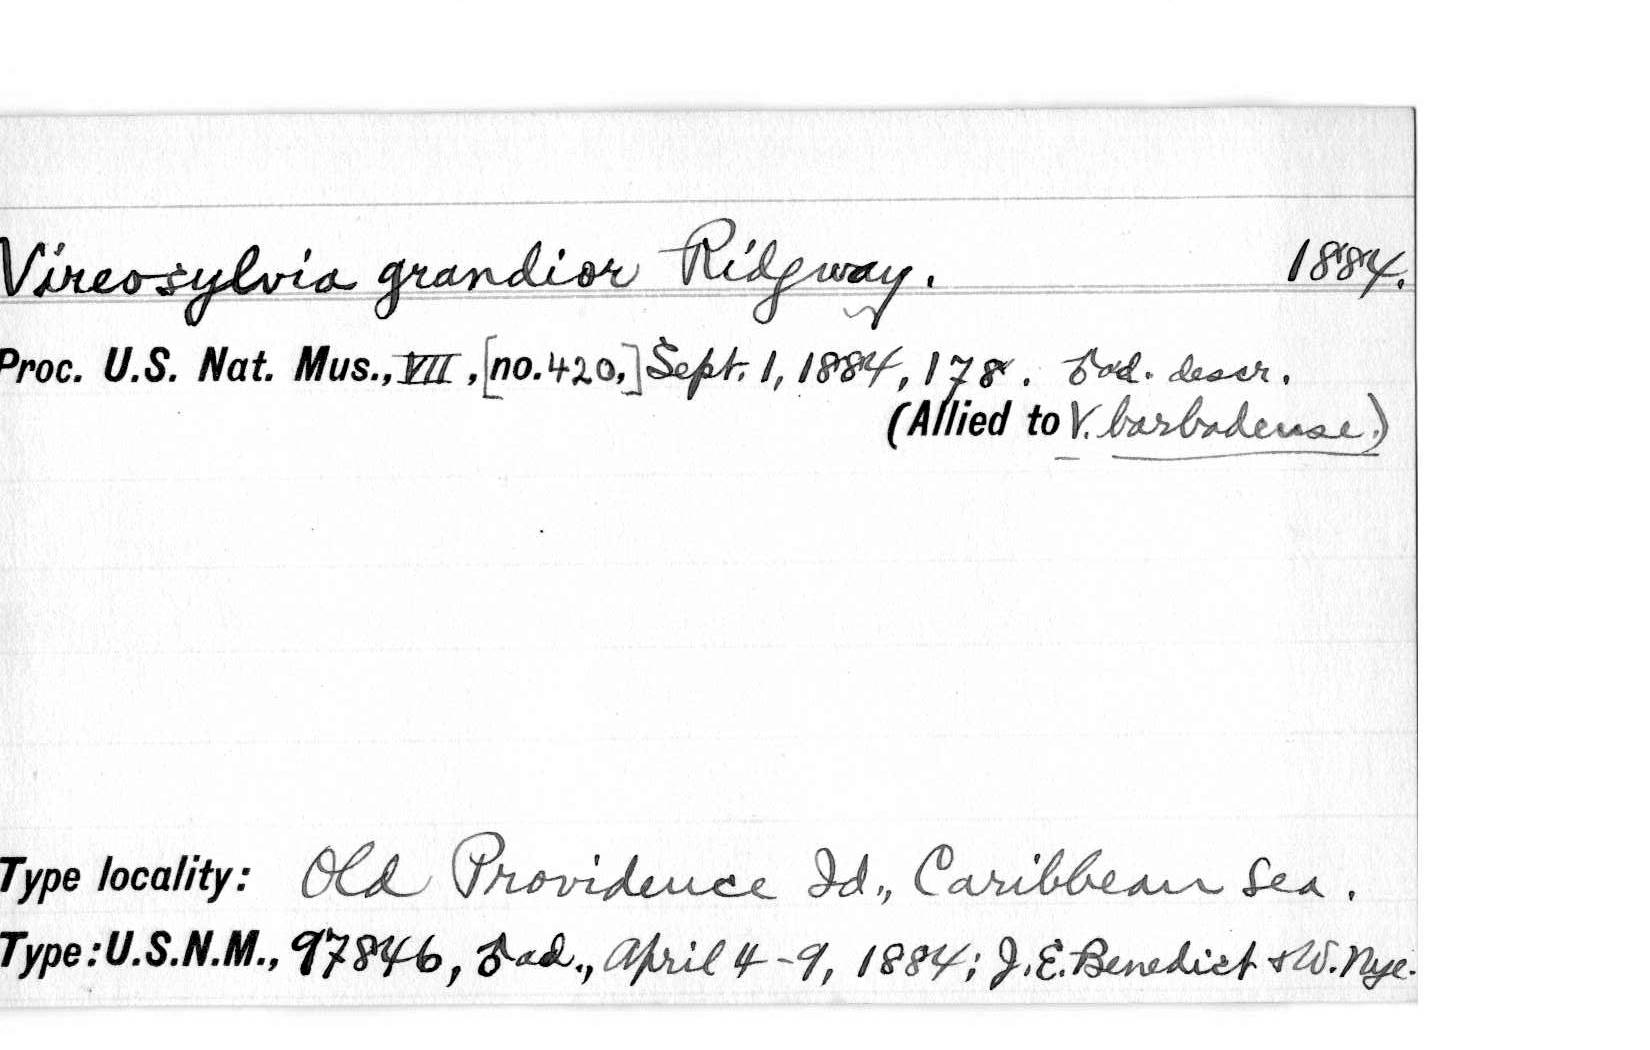 Vireosylvia grandior Ridgway. 1884.
Proc. U.S. Nat. Mus., VII, [no. 420,] Sept. 1, 1884, 178. ♂ ad. descr.
(Allied to V. barbadense.)
Type locality: Old Providence Id., Caribbean Sea.
Type: U.S.N.M., 97846, ♂ ad., April 4-9, 1884; J.E. Benedict & W. Nye.